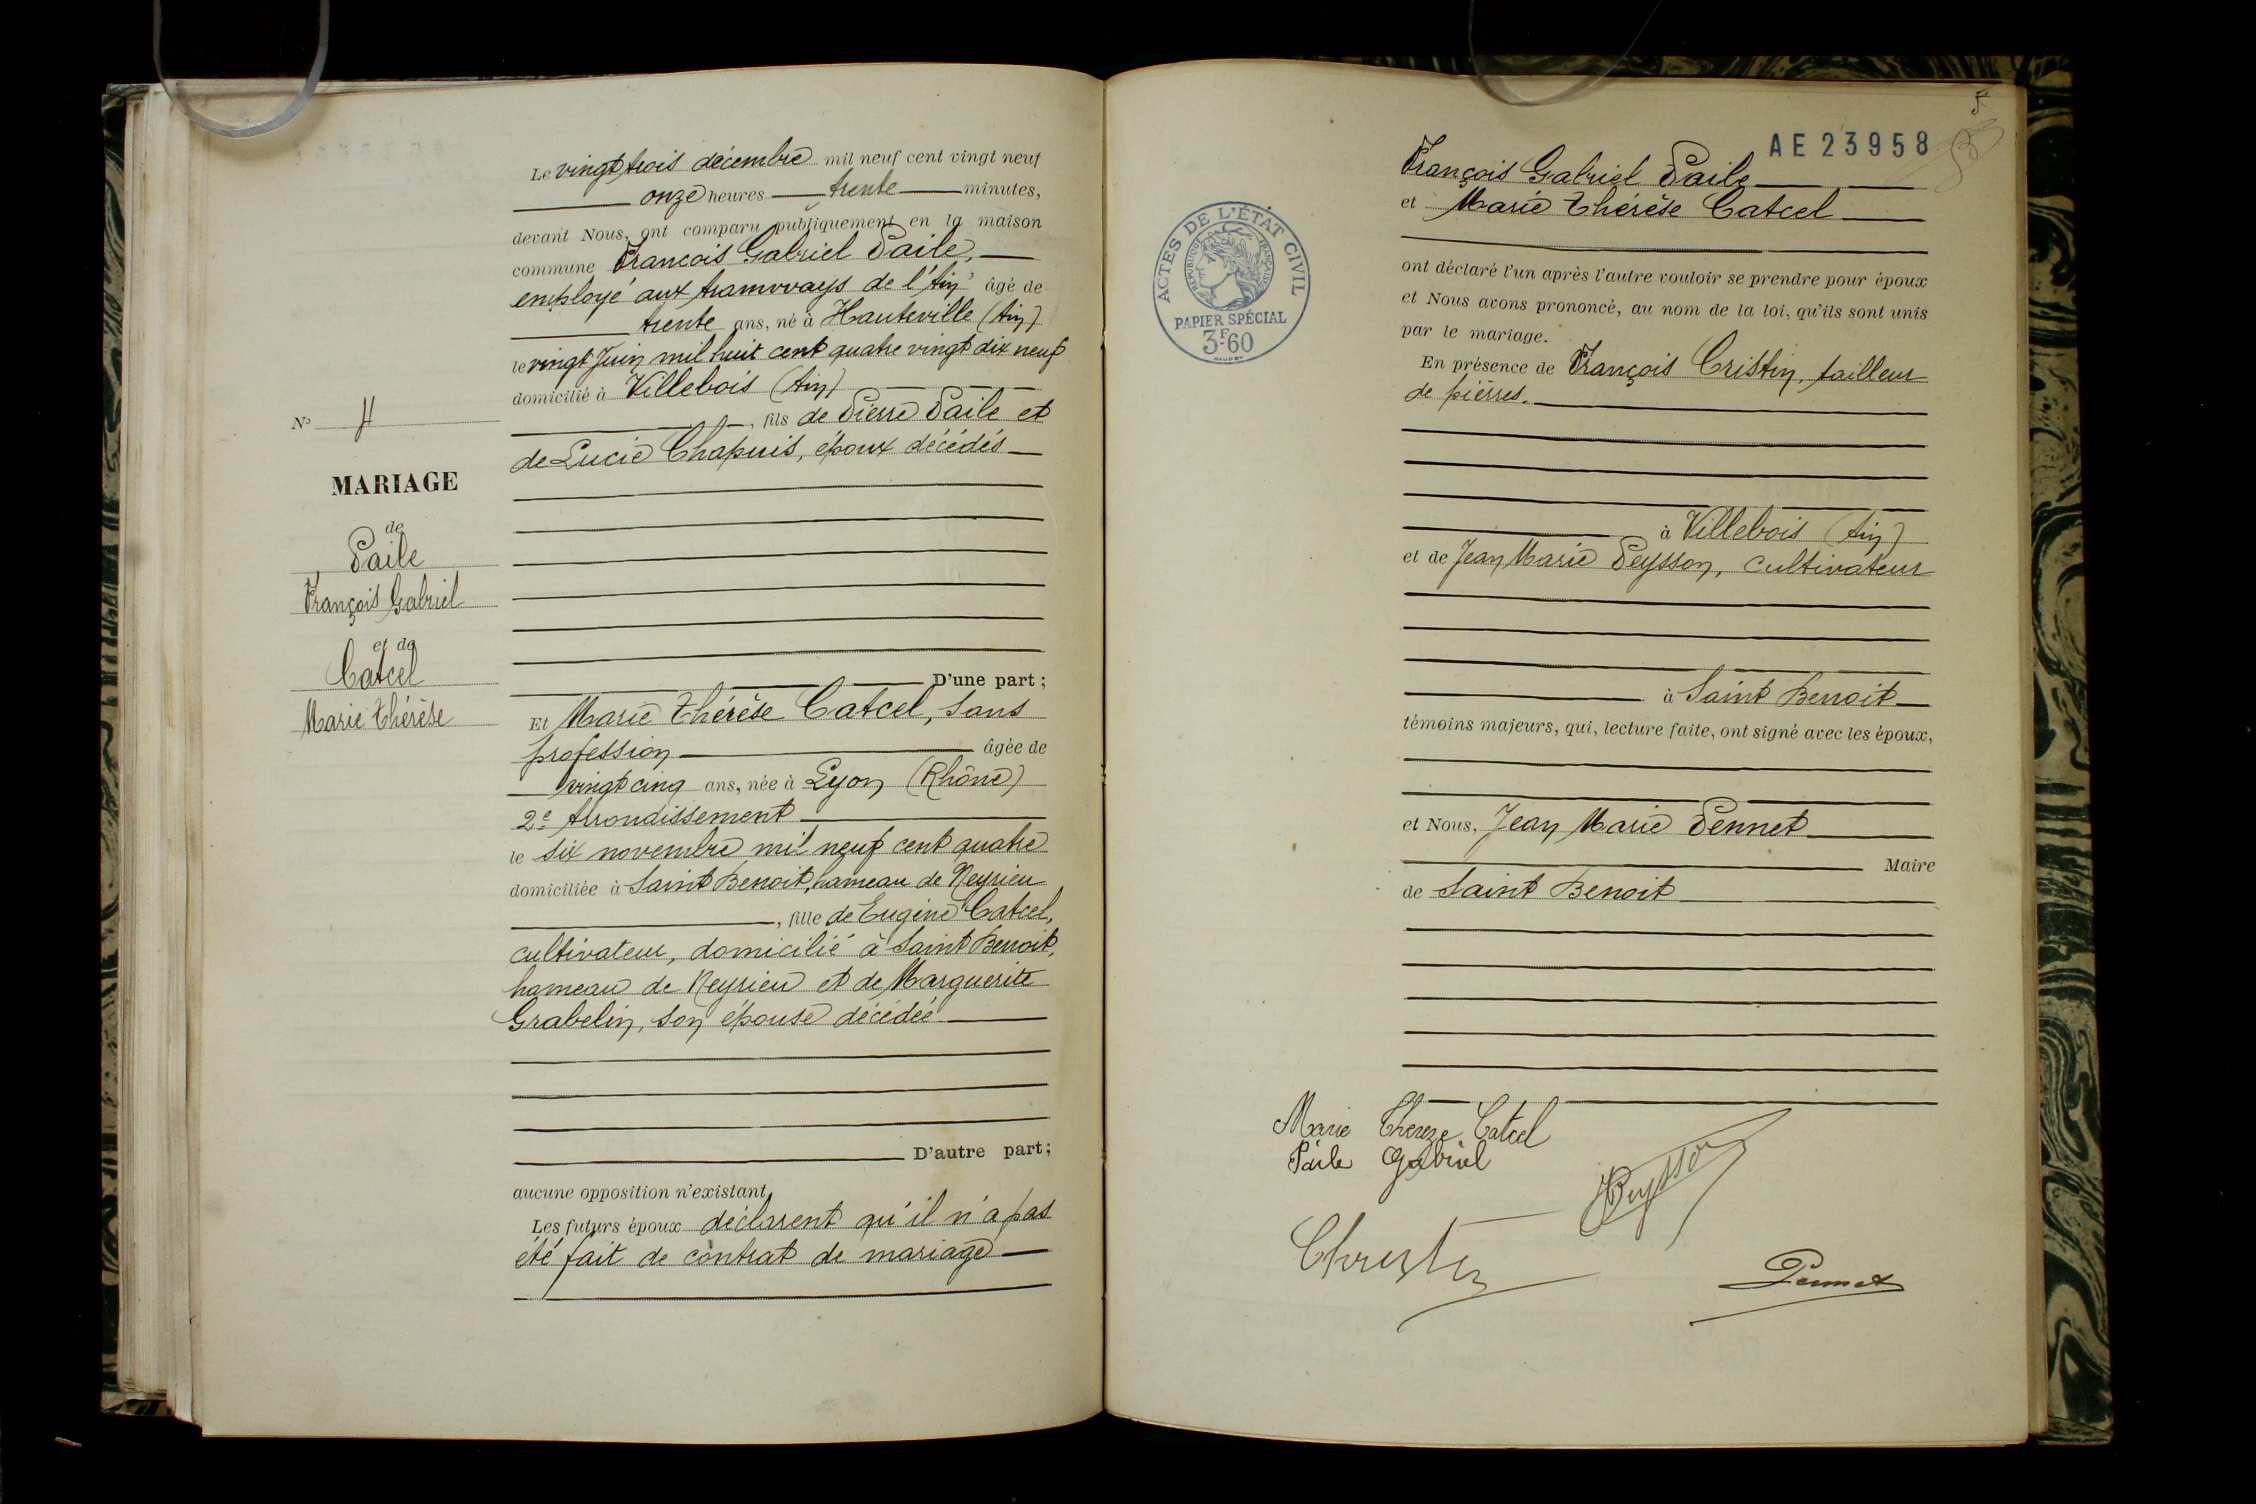 Le vingt trois décembre mil neuf cent vingt neuf
onze heures trente minutes,
devant Nous, ont comparu publiquement en la maison
commune François Gabriel Paile,
employé aux tramways de l'Ain âgé de
trente ans, né à Hauteville (Ain)
le vingt Juin mil huit cent quatre vingt dix neuf
domicilié à Villebois (Ain)
, fils de Pierre Paile et
de Lucie Chapuis, époux décédés
N° 4
MARIAGE
de
Paile
François Gabriel
et de
Catcel
Marie Thérèse
D'une part ;
Et Marie Thérèse Catcel, sans
profession âgée de
vingt cinq ans, née à Lyon (Rhône)
2e Arrondissement
le six novembre mil neuf cent quatre
domiciliée à Saint Benoit, hameau de Neyrieu
, fille de Eugène Catcel,
cultivateur, domicilié à Saint Benoit,
hameau de Neyrieu et de Marguerite
Grabelin, son épouse décédée
D'autre part ;
aucune opposition n'existant
Les futurs époux déclarent qu'il n'a pas
été fait de contrat de mariage
AE 23958
ACTES DE L'ÉTAT CIVIL
RÉPUBLIQUE FRANÇAISE
PAPIER SPÉCIAL
3F60
François Gabriel Paile
et Marie Thérèse Catcel
ont déclaré l'un après l'autre vouloir se prendre pour époux
et Nous avons prononcé, au nom de la loi, qu'ils sont unis
par le mariage.
En présence de François Cristin, tailleur
de pierres.
à Villebois (Ain)
et de Jean Marie Peysson, cultivateur
à Saint Benoit
témoins majeurs, qui, lecture faite, ont signé avec les époux,
et Nous, Jean Marie Pennet
Maire
de Saint Benoit
Marie Thereze Catcel
Paile Gabriel
Peysson
Christin
Pennet